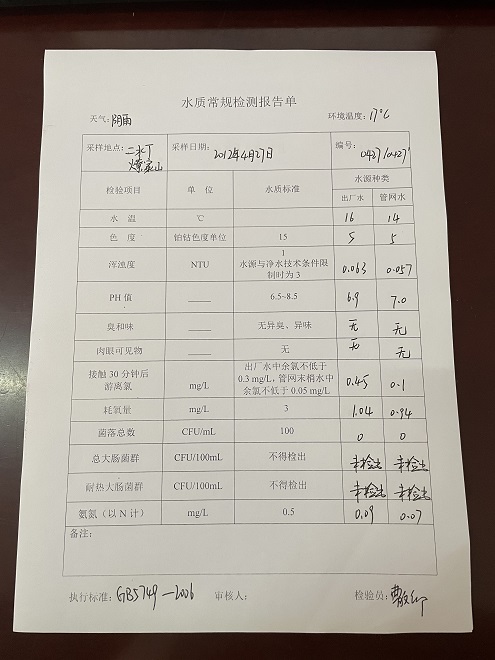 水质常规检测报告单
天气：阴雨 环境温度：17℃
采样地点：二水厂 采样日期：2012年4月27日 编号：0427/0427'
检验项目 单 位 水质标准 水源种类
出厂水 管网水
水 温 ℃ 16 14
色 度 铂钴色度单位 15 5 5
浑浊度 NTU 1 0.063 0.057
水源与净水技术条件限
制时为 3
PH 值 —— 6.5~8.5 6.9 7.0
臭和味 —— 无异臭、异味 无 无
肉眼可见物 —— 无 无 无
接触 30 分钟后 出厂水中余氯不低于
游离氯 mg/L 0.3 mg/L，管网末梢水中 0.45 0.1
余氯不低于 0.05 mg/L
耗氧量 mg/L 3 1.04 0.94
菌落总数 CFU/mL 100 0 0
总大肠菌群 CFU/100mL 不得检出 未检出 未检出
耐热大肠菌群 CFU/100mL 不得检出 未检出 未检出
氨氮（以 N 计） mg/L 0.5 0.09 0.07
备注：
执行标准：GB5749—2006 审核人： 检验员：